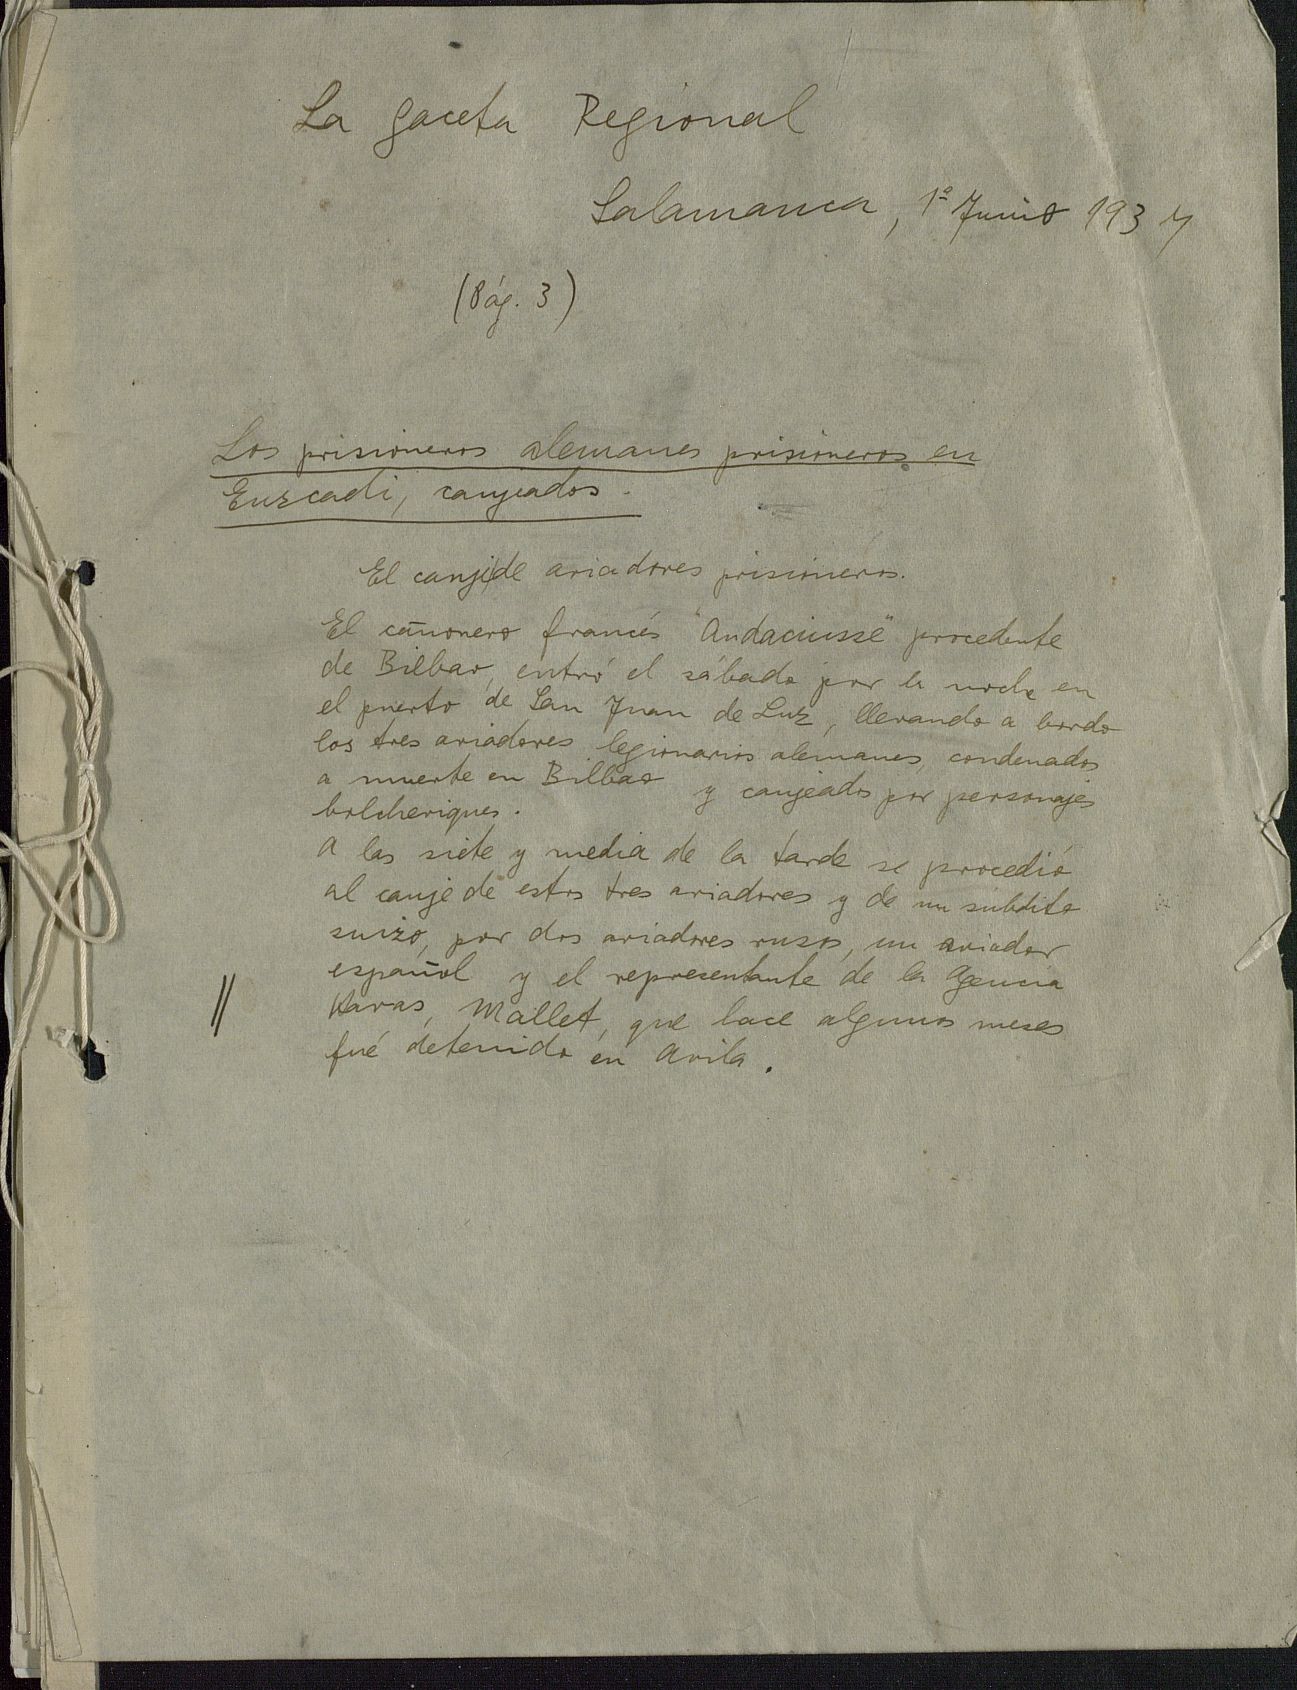 La Gaceta Regional
Salamanca, 1º Junio 1937
(Pág. 3)
Los prisioneros alemanes prisioneros en
Euzcadi, canjeados.
El canje de aviadores prisioneros.
El cañonero francés "Audaciusse" procedente
de Bilbao, entró el sábado por la noche en
el puerto de San Juan de Luz, llevando a bordo
los tres aviadores legionarios alemanes, condenados
a muerte en Bilbao y canjeados por personajes
bolcheviques.
A las siete y media de la tarde se procedió
al canje de estos tres aviadores y de un súbdito
suizo, por dos aviadores rusos, un aviador
español y el representante de la Agencia
Havas, Mallet, que hace algunos meses
fué detenido en Avila.